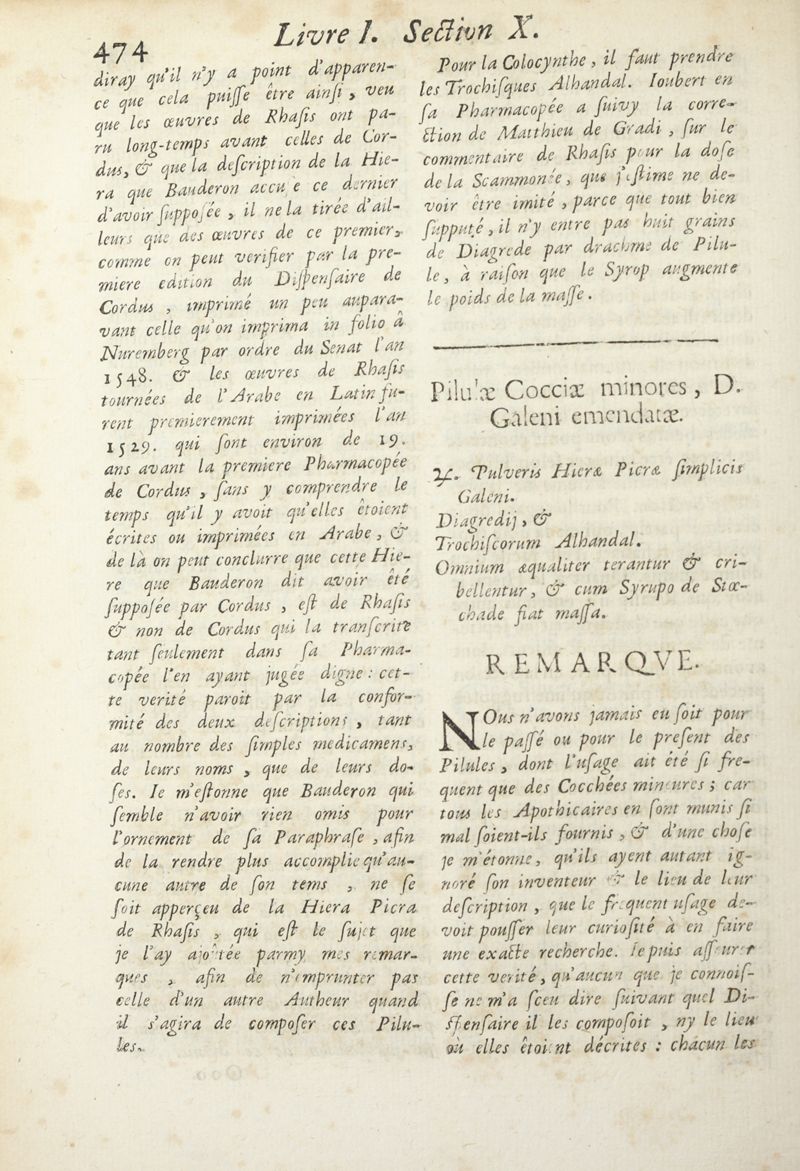 474
Livre I. Section X.
diray qu'il n'y a point d'apparen-
ce que cela puiſſe être ainſi, veu
que les œuvres de Rhaſis ont pa-
ru long-temps avant celles de Cor-
dus, & que la deſcription de la Hie-
ra que Bauderon accuſe ce dernier
d'avoir ſuppoſée, il ne la tirée d'ail-
leurs que des œuvres de ce premier,
comme on peut verifier par la pre-
miere edition du Diſpenſaire de
Cordus, imprimé un peu aupara-
vant celle qu'on imprima in folio à
Nuremberg par ordre du Senat l'an
1548. & les œuvres de Rhaſis
tournées de l'Arabe en Latin fu-
rent premierement imprimées l'an
1529. qui ſont environ de 19.
ans avant la premiere Pharmacopée
de Cordus, ſans y comprendre le
temps qu'il y avoit qu'elles étoient
écrites ou imprimées en Arabe, &
de là on peut conclurre que cette Hie-
re que Bauderon dit avoir été
ſuppoſée par Cordus, eſt de Rhaſis
& non de Cordus qui la tranſcrite
tant ſeulement dans ſa Pharma-
copée l'en ayant jugée digne: cet-
te verité paroit par la confor-
mité des deux deſcriptions, tant
au nombre des ſimples medicamens,
de leurs noms, que de leurs do-
ſes. Ie m'eſtonne que Bauderon qui
ſemble n'avoir rien omis pour
l'ornement de ſa Paraphraſe, afin
de la rendre plus accomplie qu'au-
cune autre de ſon tems, ne ſe
ſoit apperçeu de la Hiera Picra
de Rhaſis, qui eſt le ſujet que
je l'ay ajoûtée parmy mes remar-
ques, afin de n'emprunter pas
celle d'un autre Autheur quand
il s'agira de compoſer ces Pilu-
les.
Pour la Colocynthe, il faut prendre
les Trochiſques Alhandal. Ioubert en
ſa Pharmacopée a ſuivy la corre-
ction de Matthieu de Gradi, ſur le
commentaire de Rhaſis pour la doſe
de la Scammonée, que j'eſtime ne de-
voir être imité, parce que tout bien
ſupputé, il n'y entre pas huit grains
de Diagrede par drachme de Pilu-
le, à raiſon que le Syrop augmente
le poids de la maſſe.
Pilulæ Cocciæ minores, D.
Galeni emendatæ.
℞. Pulveris Hieræ Picræ ſimplicis
Galeni.
Diagredij, &
Trochiſcorum Alhandal.
Omnium æqualiter terantur & cri-
bellentur, & cum Syrupo de Stœ-
chade fiat maſſa.
REMARQVE.
NOus n'avons jamais eu ſoit pour
le paſſé ou pour le preſent des
Pilules, dont l'uſage ait été ſi fre-
quent que des Cocchées mineures; car
tous les Apothicaires en ſont munis ſi
mal ſoient-ils fournis, & d'une choſe
je m'étonne, qu'ils ayent autant ig-
noré ſon inventeur & le lieu de leur
deſcription, que le frequent uſage de-
voit pouſſer leur curioſité à en faire
une exacte recherche. Ie puis aſſeurer
cette verité, qu'aucun que je connoiſ-
ſe ne m'a ſceu dire ſuivant quel Di-
ſpenſaire il les compoſoit, ny le lieu
où elles étoient décrites: chacun les